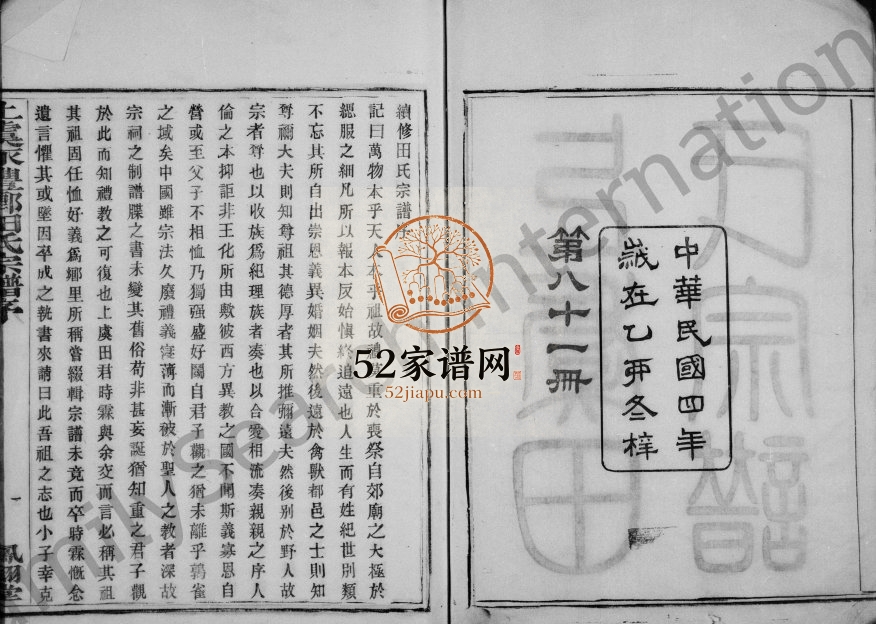 中華民國四年
歲在乙卯冬梓
第八十一冊
續修田氏宗譜序
記曰萬物本乎天人本乎祖故禮莫重於喪祭自郊廟之大極於
緦服之細凡所以報本反始愼終追遠也人生而有姓紀世別類
不忘其所自出崇恩義異婚姻夫然後遠於禽獸都邑之士則知
尊禰大夫則知尊祖其德厚者其所推彌遠夫然後別於野人故
宗者尊也以收族爲紀理族者湊也以合愛相流湊親親之序人
倫之本抑詎非王化所由敷彼西方異敎之國不聞斯義寡恩自
營或至父子不相恤乃獨强盛好鬭自君子觀之猶未離乎鶉雀
之域矣中國雖宗法久廢禮義寖薄而漸被於聖人之敎者深故
宗祠之制譜牒之書未變其舊俗苟非甚妄誕猶知重之君子觀
於此而知禮敎之可復也上虞田君時霖與余交而言必稱其祖
其祖固任恤好義爲鄉里所稱嘗綴輯宗譜未竟而卒時霖慨念
遺言懼其或墜因卒成之執書來請曰此吾祖之志也小子幸克
上虞永豐鄉田氏宗譜序
一
鳳翔堂
上虞田
氏宗譜
52家谱网
52jiapu.com
FamilySearch International